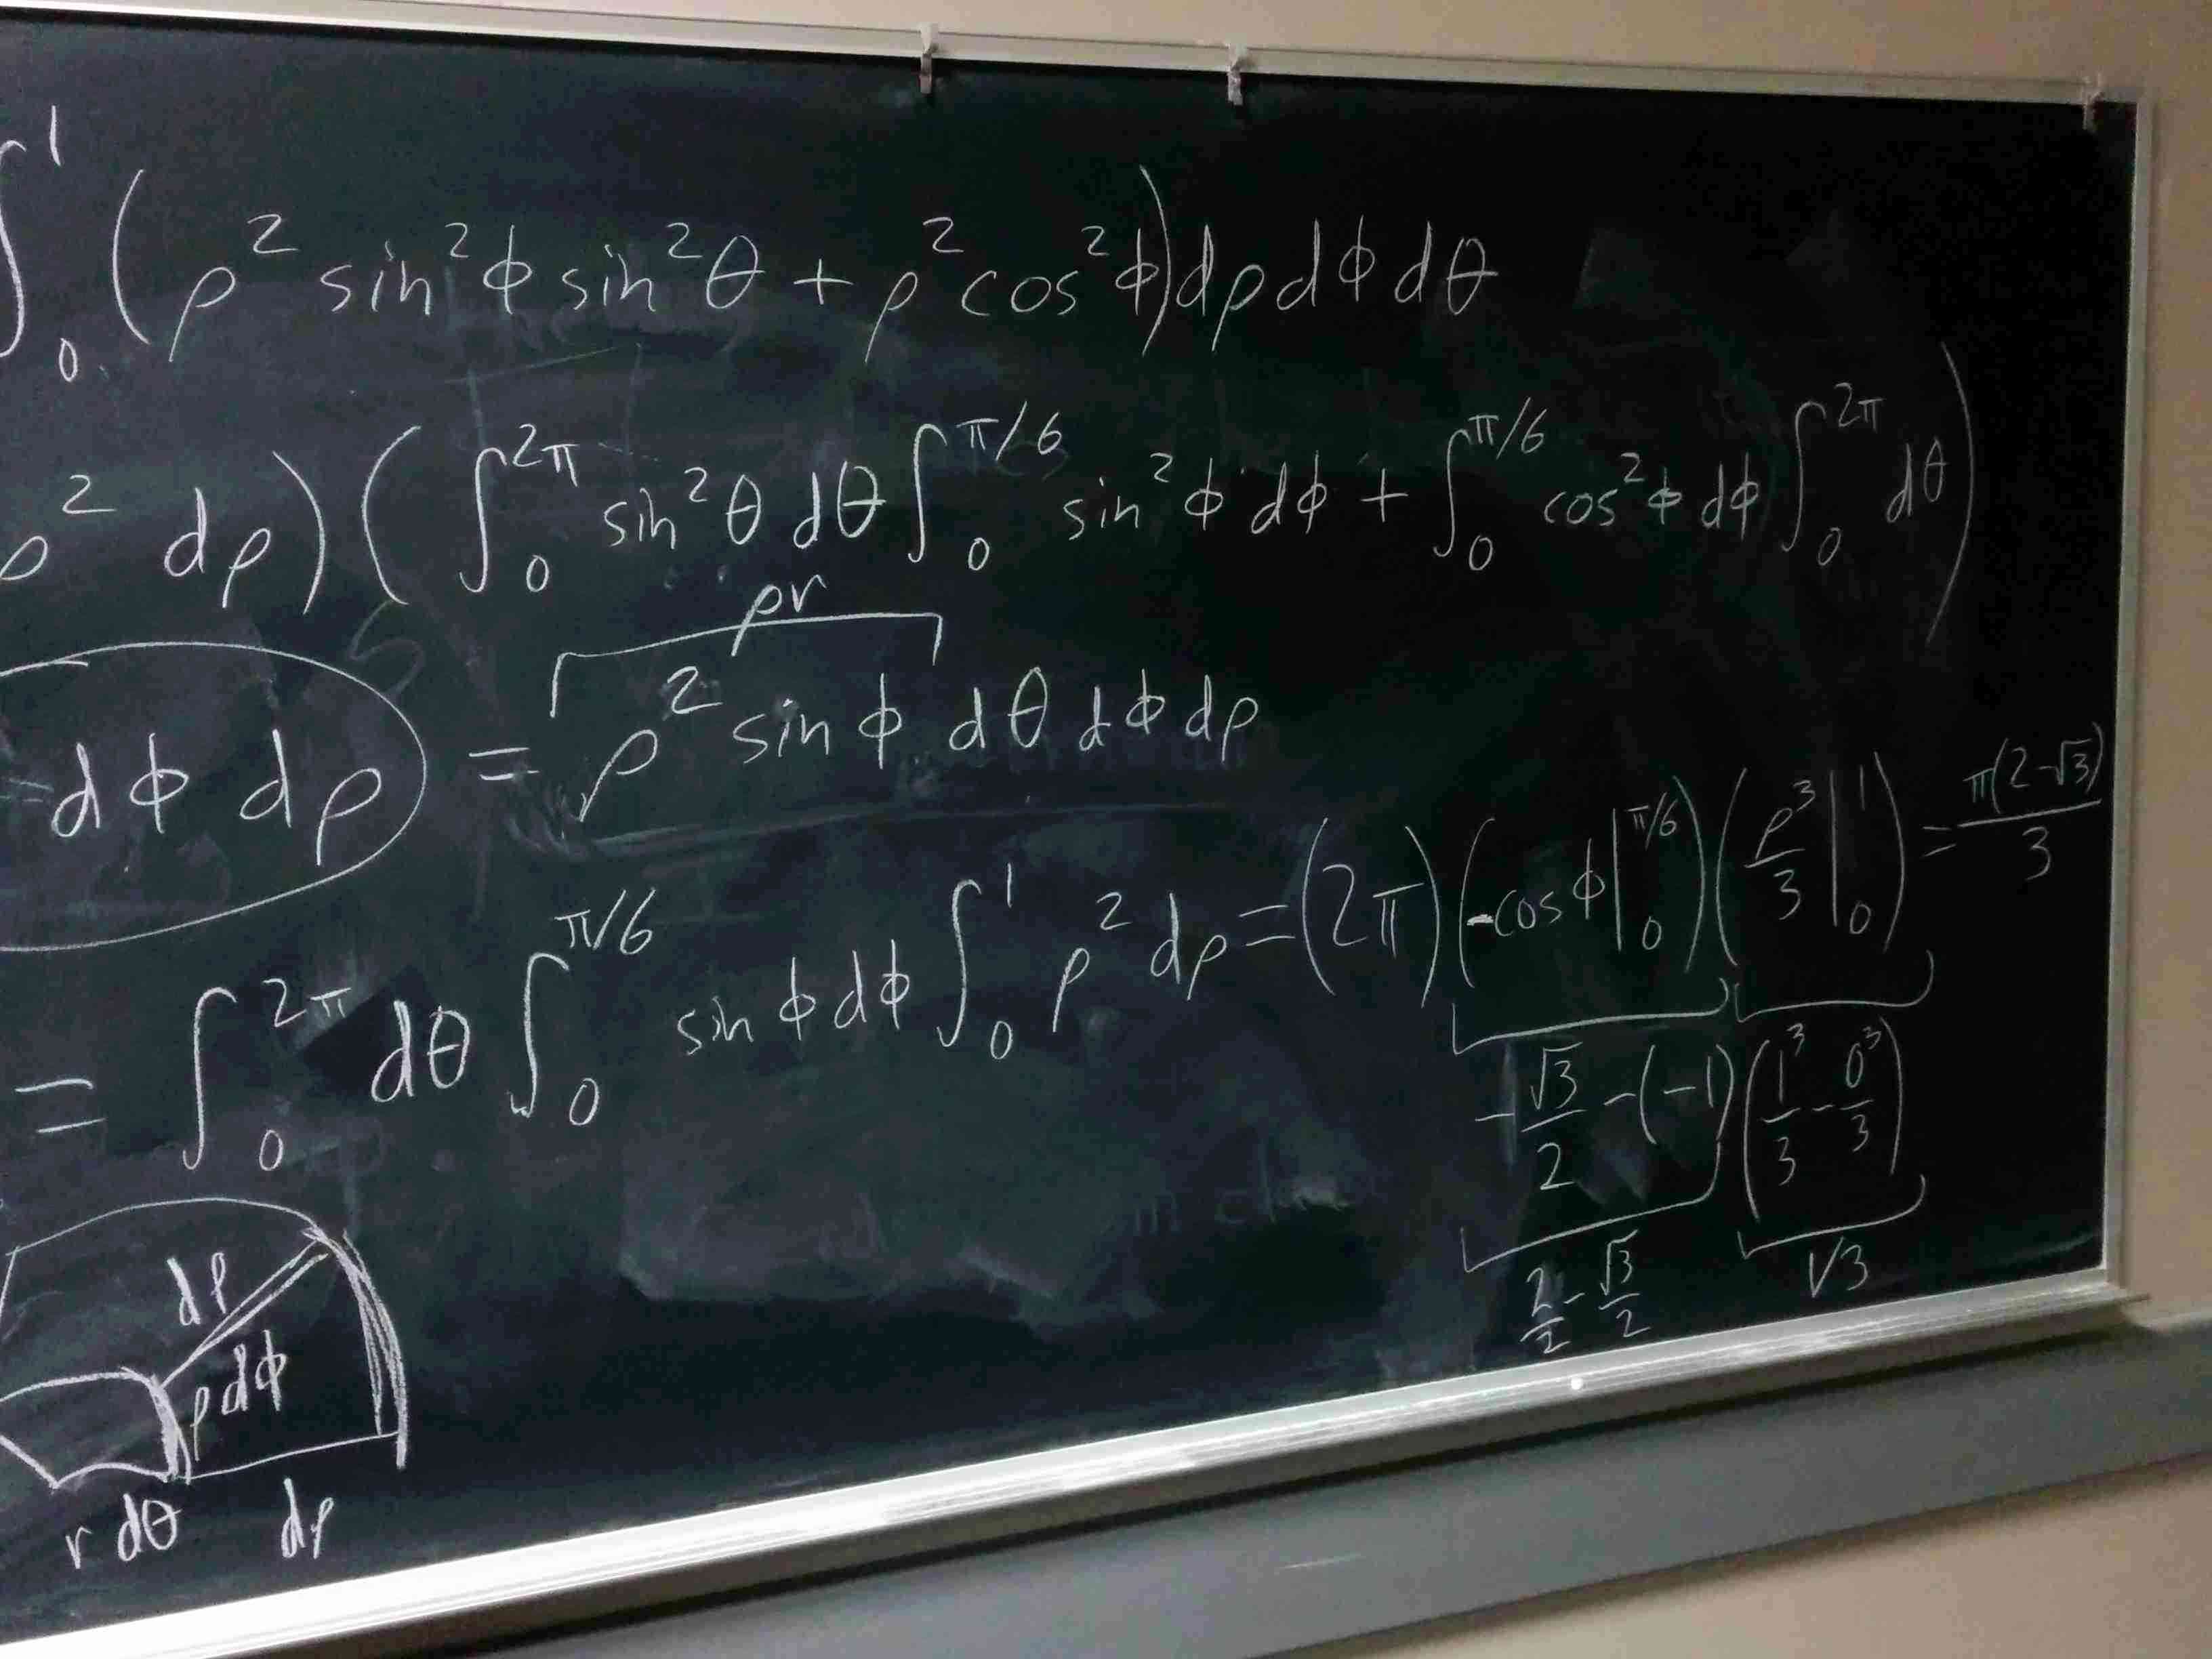 ∫₀¹ (ρ² sin²ϕ sin²θ + ρ² cos²ϕ) dρ dϕ dθ
ρ² dρ) (∫₀^{2π} sin²θ dθ ∫₀^{π/6} sin²ϕ dϕ + ∫₀^{π/6} cos²ϕ dϕ ∫₀^{2π} dθ)
ρr
dϕ dρ = ρ² sin ϕ dθ dϕ dρ
= ∫₀^{2π} dθ ∫₀^{π/6} sin ϕ dϕ ∫₀¹ ρ² dρ = (2π) (-cos ϕ |₀^{π/6}) (ρ³/3 |₀¹) = π(2-√3)/3
-√3/2 - (-1) (1³/3 - 0³/3)
2/2 - √3/2 1/3
dρ
ρdϕ
r dθ dρ